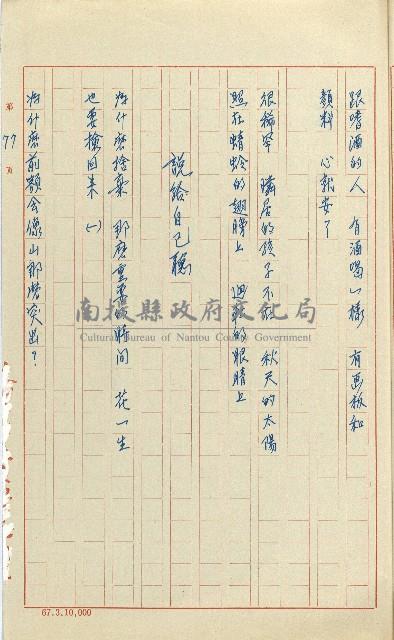 跟嗜酒的人 有酒喝一樣 有画板和
顏料 心就安了
很稀罕 隣居的孩子不 秋天的太陽
照在蜻蛉的翅膀上 的眼睛上
說給自己聽
為什麼捨棄 那麼重要的時間 花一生
也要撿回來 (一)
為什麼前額會像山那麼突出?
第 77 頁
南投縣政府文化局
Cultural Bureau of Nantou County Government
67.3.10,000